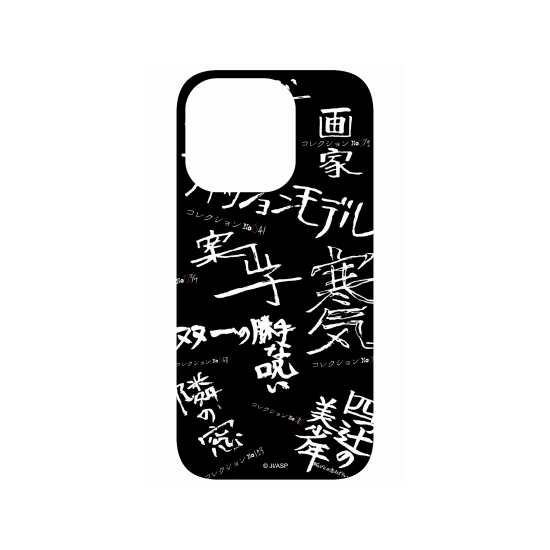 画家
コレクションNo
ファッションモデル
コレクションNo 041
案山子
寒気
双一の勝手な呪い
コレクションNo
コレクションNo
隣の窓
コレクションNo
四つ辻の美少年
コレクションNo
© JI/ASP